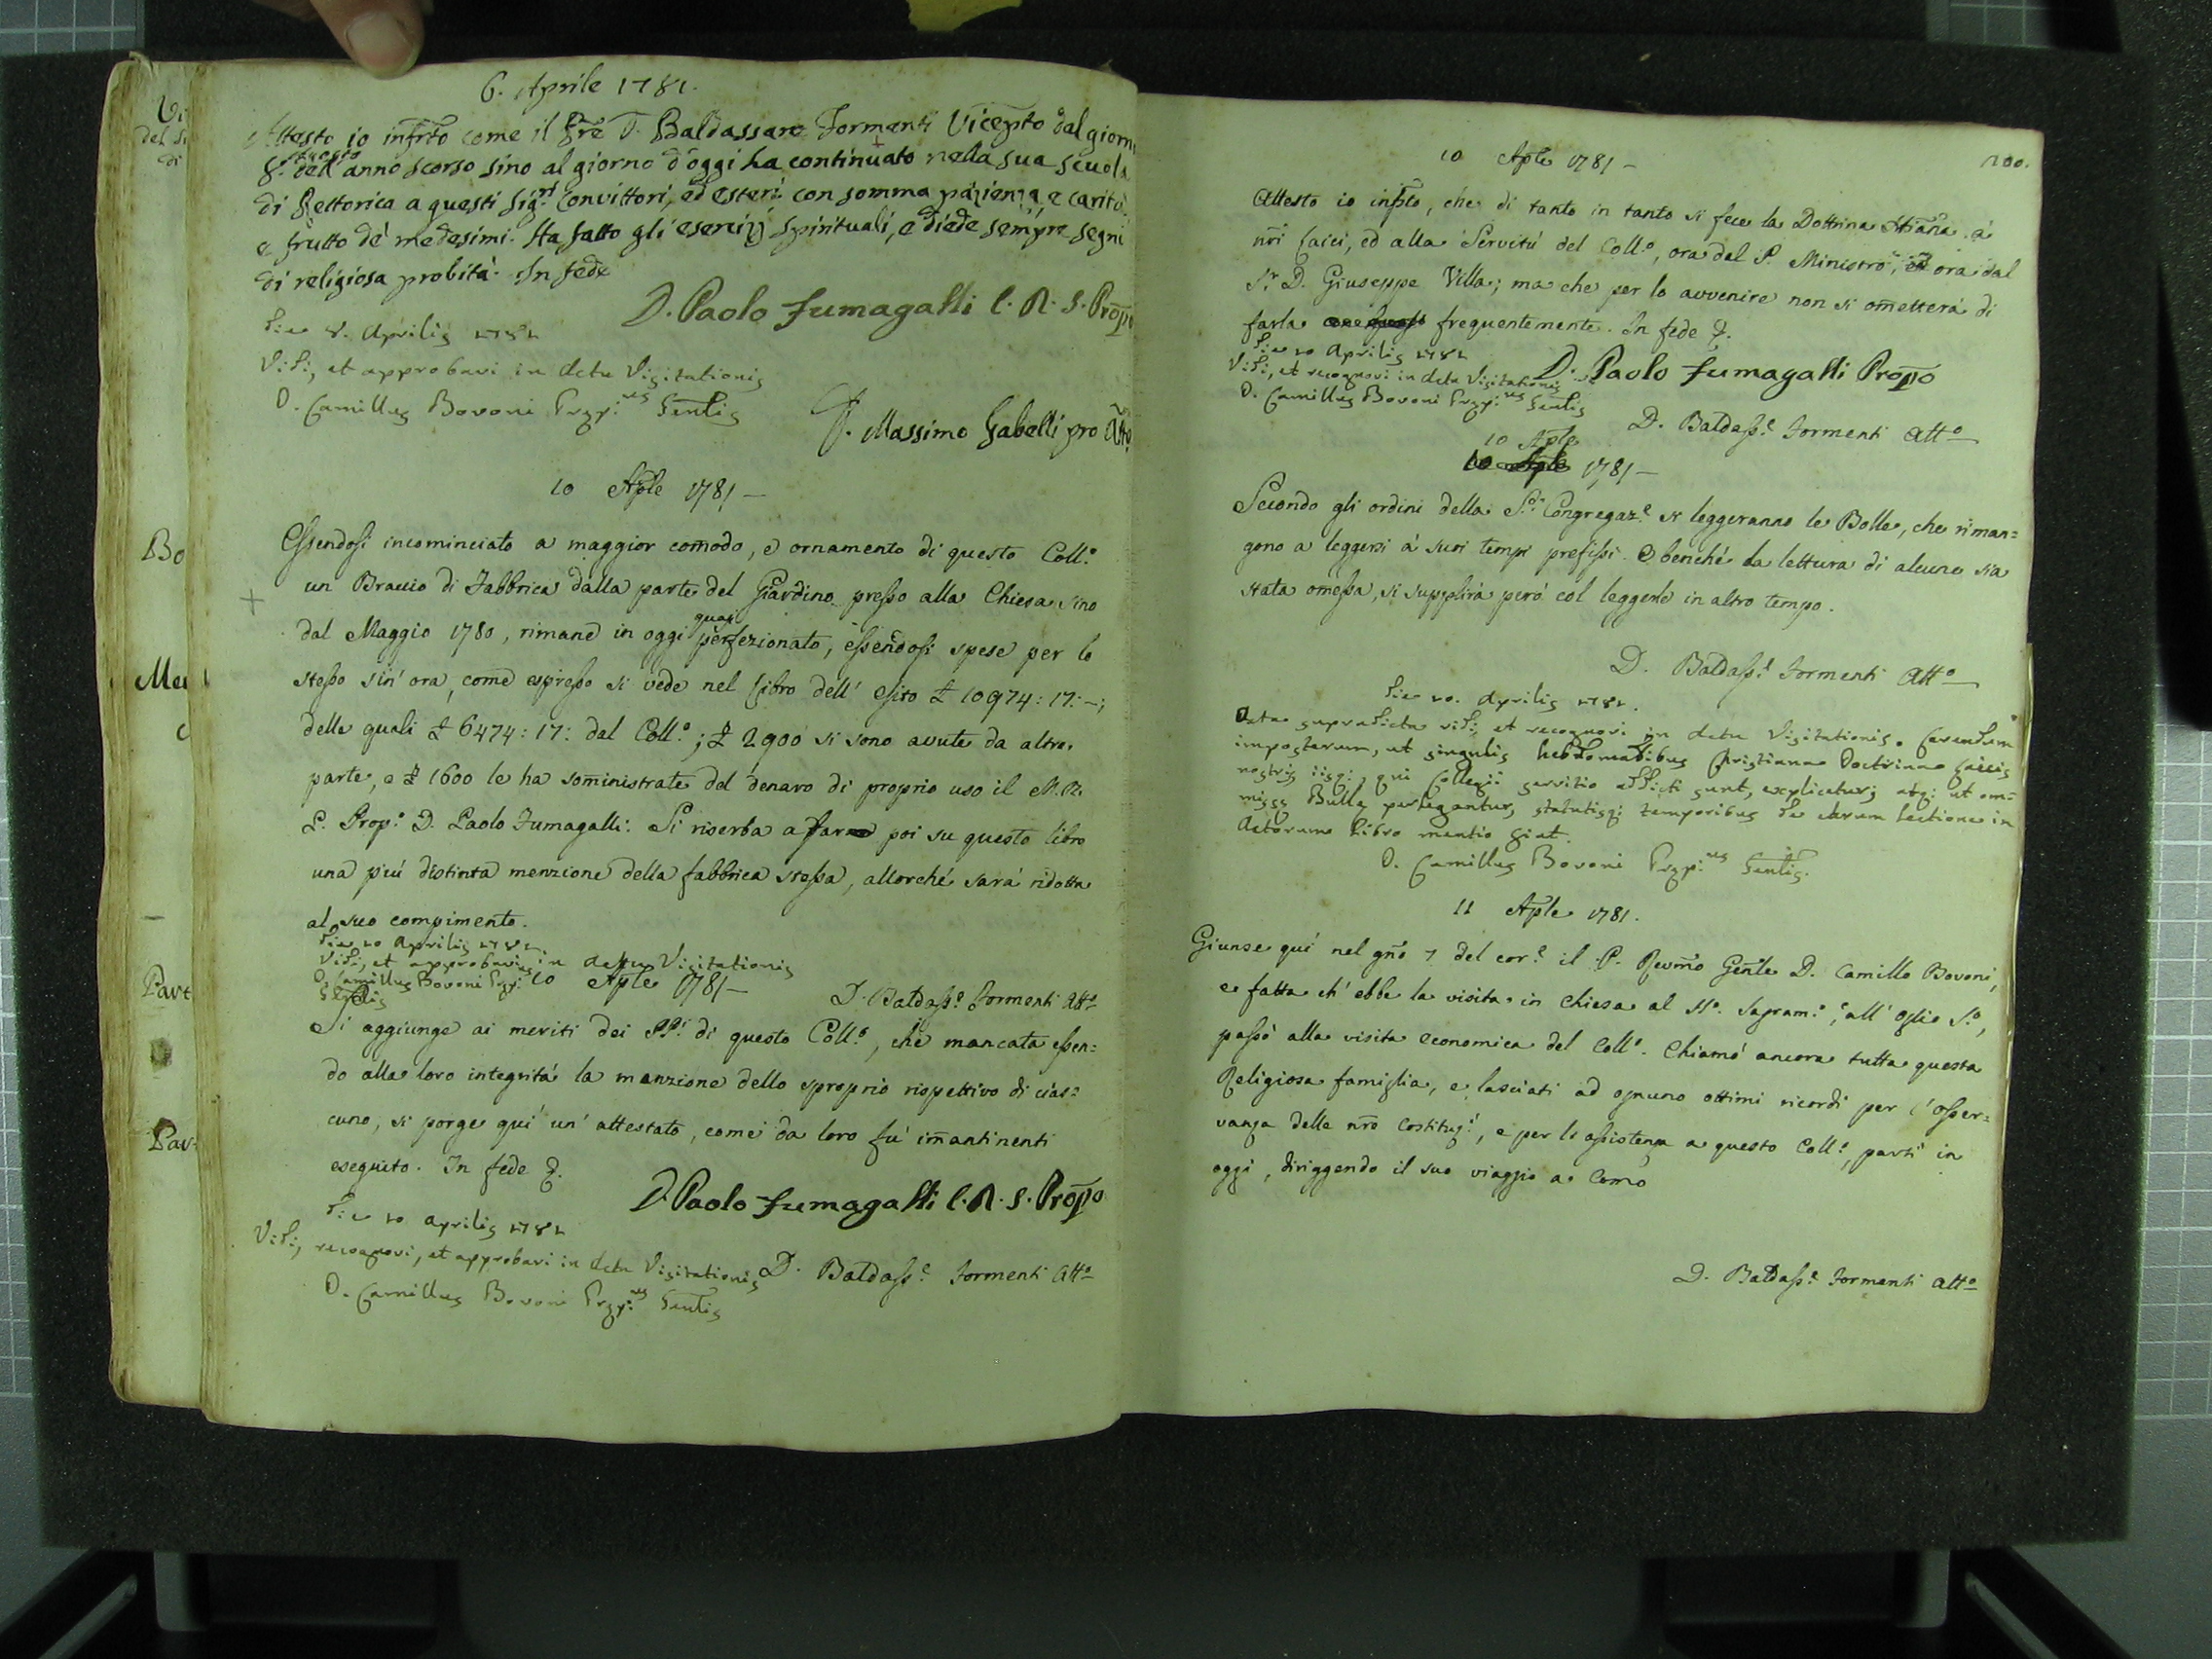 6. Aprile 1781.
Attesto io infrto come il Pre D. Baldassare Formenti Viceprto dal giorno
8. Agosto dell'anno scorso sino al giorno d'oggi ha continuato nella sua scuola
di Rettorica a questi Sigri Convittori, ed esteri con somma pazienza, e carità,
e frutto de' medesimi. Ha fatto gli esercizj spirituali, e diede sempre segni
di religiosa probità. In fede
D. Paolo Fumagalli C. R. S. Propto
Die 8. Aprilis 1781
Vidi, et approbavi in Actu Visitationis
D. Camillus Bovoni Præp:us Gentlis
D. Massimo Gabelli pro Atto
10 Aple 1781 —
Essendosi incominciato a maggior comodo, e ornamento di questo Coll:o
un Braccio di Fabbrica dalla parte del Giardino presso alla Chiesa sino
dal Maggio 1780, rimane in oggi quasi perfezionato, essendosi spese per lo
stesso sin' ora, come espresso si vede nel Libro dell' esito £ 10974: 17: -;
delle quali £ 6474: 17: dal Coll:o; £ 2900 si sono avute da altra
parte, e £ 1600 le ha somministrate del denaro di proprio uso il M. R.
P. Prop:o D. Paolo Fumagalli. Si riserba a far poi su questo libro
una più distinta menzione della fabbrica stessa, allorchè sarà ridotta
al suo compimento.
Die 10 Aprilis 1781.
Vidi, et approbavi in Actu Visitationis
D. Camillus Bovoni Præp:us
Gentlis
D. Baldass:e Formenti Att:o
10 Aple 1781 —
Si aggiunge ai meriti dei PP:i di questo Coll:o, che mancata essen=
do alla loro integrità la menzione dello sproprio rispettivo di cias=
cuno, si porge quì un' attestato, come da loro fù imantinenti
eseguito. In fede &.
D. Paolo Fumagalli C. R. S. Propto
Die 10 Aprilis 1781
Vidi, recognovi, et approbavi in Actu Visitationis
D. Camillus Bovoni Præp:us Gentlis
D. Baldass:e Formenti Att:o
200.
10 Aple 1781 —
Attesto io infrto, che di tanto in tanto si fece la Dottrina Xtiana a'
nri Laici, ed alla Servitù del Coll:o, ora dal P. Ministro, ed ora dal
Sr D. Giuseppe Villa; ma che per lo avvenire non si ometterà di
farla frequentemente. In fede &.
Die 10 Aprilis 1781
Vidi, et recognovi in Actu Visitationis
D. Camillus Bovoni Præp:us Gentlis
D. Paolo Fumagalli Propto
D. Baldass:e Formenti Att:o
10 Aple
10 Aple 1781 —
Secondo gli ordini della S:a Congregaz:e si leggeranno le Bolle, che riman=
gono a leggersi a' suoi tempi prefissi. E benchè la lettura di alcuna sia
stata omessa, si supplirà però col leggerle in altro tempo.
D. Baldass:e Formenti Att:o
Die 10. Aprilis 1781.
Acta supradicta vidi, et recognovi in Actu Visitationis. Curandum
imposterum, ut singulis hebdomadibus Christiana Doctrina Laicis
nostris iisq:, qui Collegii servitio addicti sunt, explicetur; atq: ut om=
missæ Bullæ perlegantur, statutisq: temporibus de earum lectione in
Actorum Libro mentio fiat.
D. Camillus Bovoni Præp:us Gentlis.
11 Aple 1781.
Giunse quì nel gno 7 del cor:e il P. Revmo Genle D. Camillo Bovoni,
e fatta ch' ebbe la visita in Chiesa al SS:o Sagram:o, e all' Oglio S:o,
passò alla visita economica del Coll:o. Chiamò ancora tutta questa
Religiosa famiglia, e lasciati ad ognuno ottimi ricordi per l' osser=
vanza delle nre Costituz:i, e per l' assistenza a questo Coll:o, partì in
oggi, diriggendo il suo viaggio a Como
D. Baldass:e Formenti Att:o